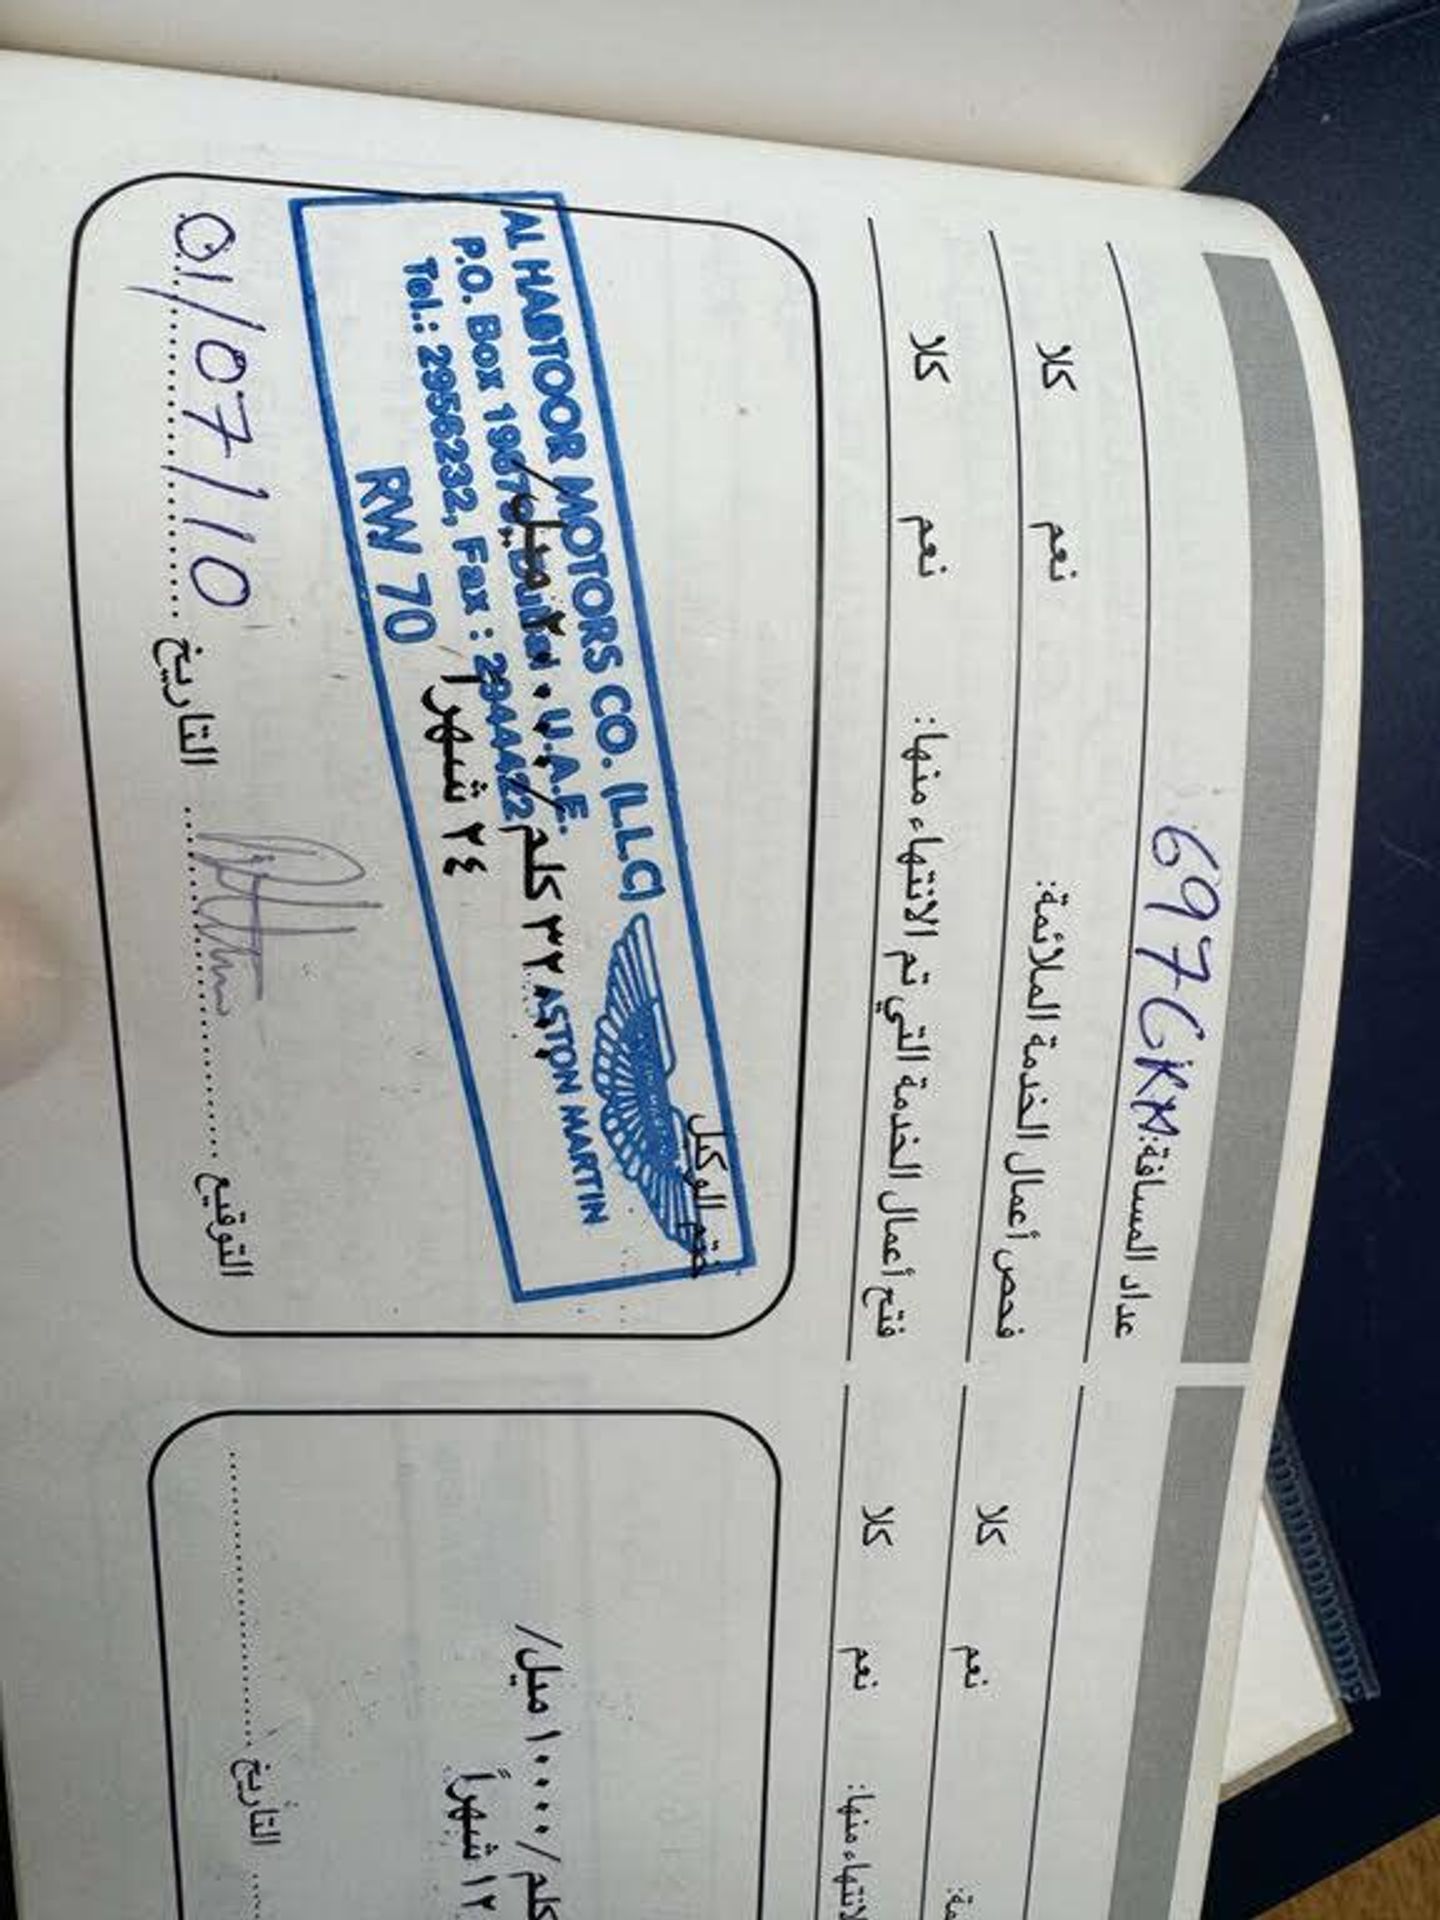 عداد المسافة: 6976KM
فحص أعمال الخدمة الملائمة: نعم كلا
فتح أعمال الخدمة التي تم الانتهاء منها: نعم كلا
ختم الوكيل
AL HABTOOR MOTORS CO. (LLC)
P.O. Box 19679, Dubai, U.A.E.
Tel.: 2956232, Fax : 2944422
RW 70
ASTON MARTIN
٣٢٠٠٠ كلم/٢٠٠٠٠ ميل/
٢٤ شهراً
التوقيع التاريخ 01/07/10
نعم كلا
لانتهاء منها: نعم كلا
كلم/١٠٠٠٠ ميل/
١٢ شهراً
التاريخ